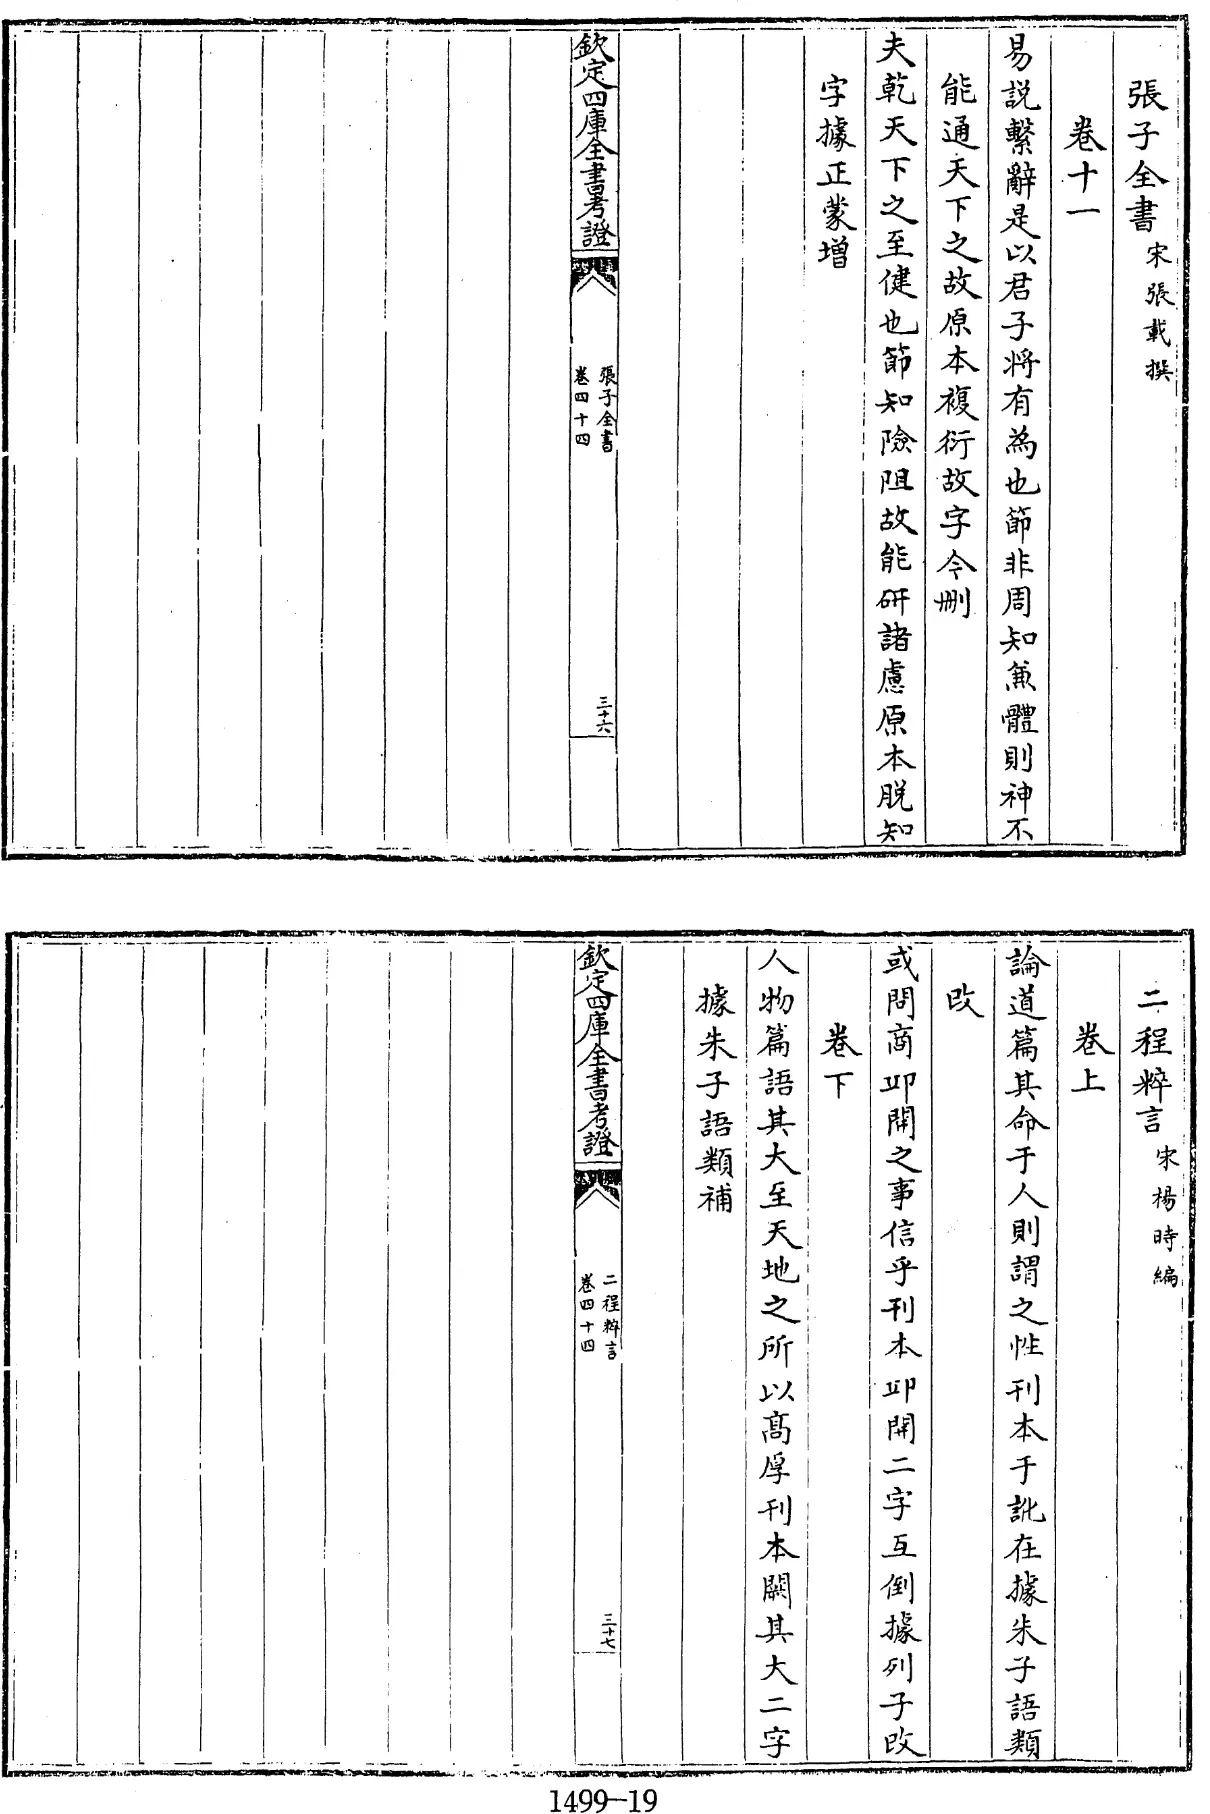 張子全書 宋張載撰
卷十一
易說繫辭是以君子將有為也節非周知兼體則神不
能通天下之故原本複衍故字今刪
夫乾天下之至健也節知險阻故能研諸慮原本脫知
字據正蒙增
欽定四庫全書考證
張子全書
卷四十四
三十六
二程粹言 宋楊時編
卷上
論道篇其命于人則謂之性刊本于訛在據朱子語類
改
或問商卬開之事信乎刊本卬開二字互倒據列子改
卷下
人物篇語其大至天地之所以高厚刊本闕其大二字
據朱子語類補
欽定四庫全書考證
二程粹言
卷四十四
三十七
1499-19